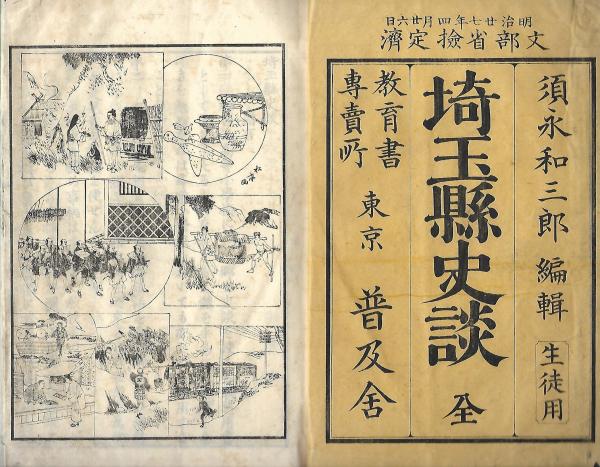 明治廿七年四月廿六日
文部省撿定濟
須永和三郎編輯
生徒用
埼玉縣史談
全
教育書
專賣所
東京
普及舍